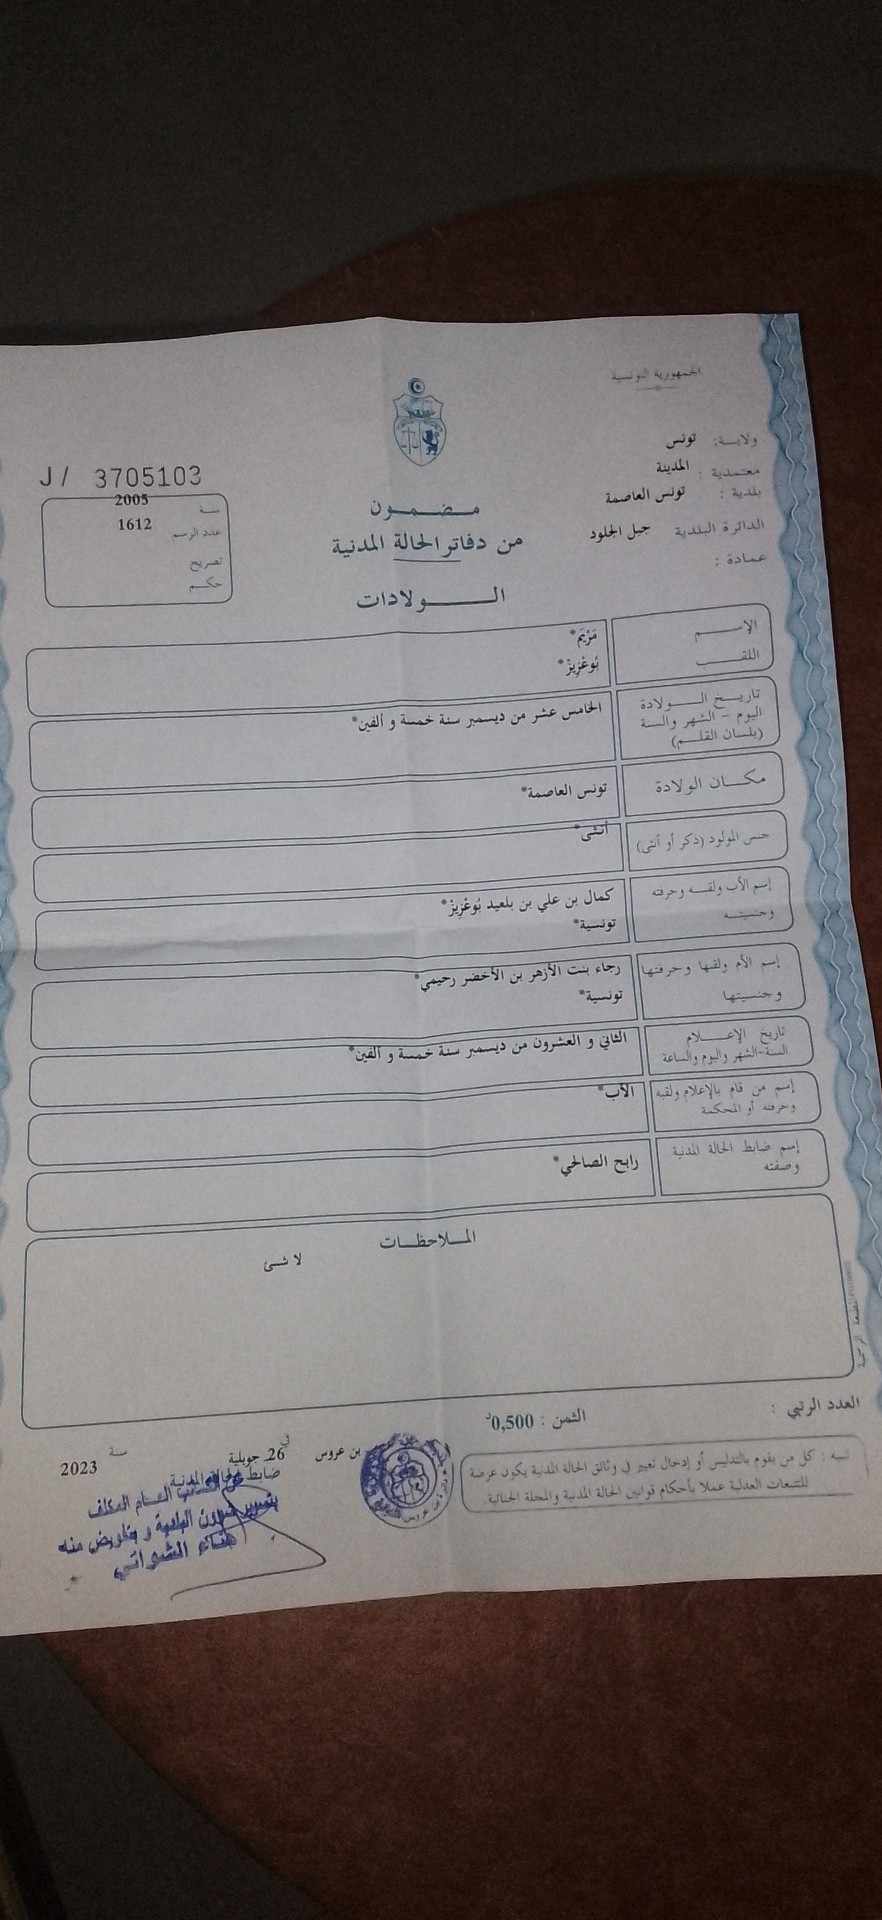 الجمهورية التونسية
ولايــة: تونس
معتمدية : المدينة
بلدية : تونس العاصمة
الدائرة البلدية جبل الجلود
عمادة :
J / 3705103
سنة 2005
عدد الرسم 1612
تصريح
حكم
مضمون
من دفاتر الحالة المدنية
الولادات
الإسم مَرْيَم*
اللقب بُوعْزِيزْ*
تاريخ الولادة
اليوم – الشهر والسنة
(بلسان القلم)
الخامس عشر من ديسمبر سنة خمسة و ألفين*
مكان الولادة تونس العاصمة*
جنس المولود (ذكر أو أنثى) أنثى*
إسم الأب ولقبه وحرفته
وجنسيته
كمال بن علي بن بلعيد بُوعْزِيزْ*
تونسية*
إسم الأم ولقبها وحرفتها
وجنسيتها
رجاء بنت الأزهر بن الأخضر رحيمي*
تونسية*
تاريخ الإعلام
السنة-الشهر واليوم والساعة
الثاني و العشرون من ديسمبر سنة خمسة و ألفين*
إسم من قام بالإعلام ولقبه
وحرفته أو المحكمة
الأب*
إسم ضابط الحالة المدنية
وصفته
رابح الصالحي*
الملاحظات
لا شئ
العدد الرتبي :
الثمن : 0,500د
تنبيه : كل من يقوم بالتدليس أو إدخال تغيير في وثائق الحالة المدنية يكون عرضة
للتتبعات العدلية عملا بأحكام قوانين الحالة المدنية والمجلة الجنائية.
بن عروس في 26 جويلية سنة 2023
ضابط الحالة المدنية
عن الكاتب العام المكلف
بتسيير شؤون البلدية و بتفويض منه
هناء الشواتي